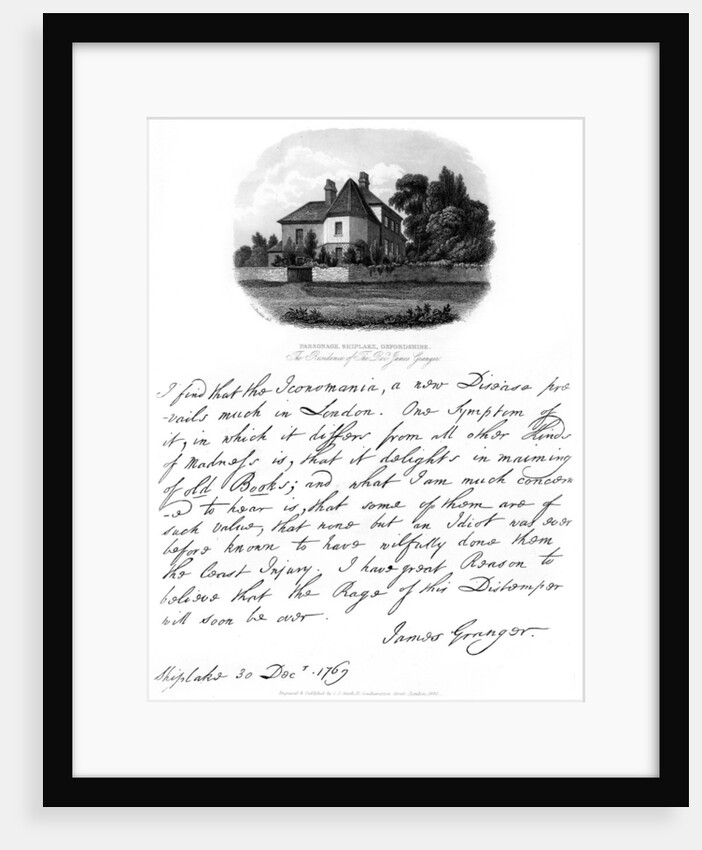 PARSONAGE, SHIPLAKE, OXFORDSHIRE.
The Residence of The Revd. James Granger.
I find that the Iconomania, a new Disease pre
-vails much in London. One Symptom of
it, in which it differs from all other Kinds
of Madness is, that it delights in maiming
of old Books; and what I am much concern
-ed to hear is, that some of them are of
such value, that none but an Idiot was ever
before known to have wilfully done them
the least Injury. I have great Reason to
believe that the Rage of this Distemper
will soon be over.
James Granger.
Shiplake 30 Decr. 1769
Engraved & Published by C. J. Smith, Southampton Street, London,